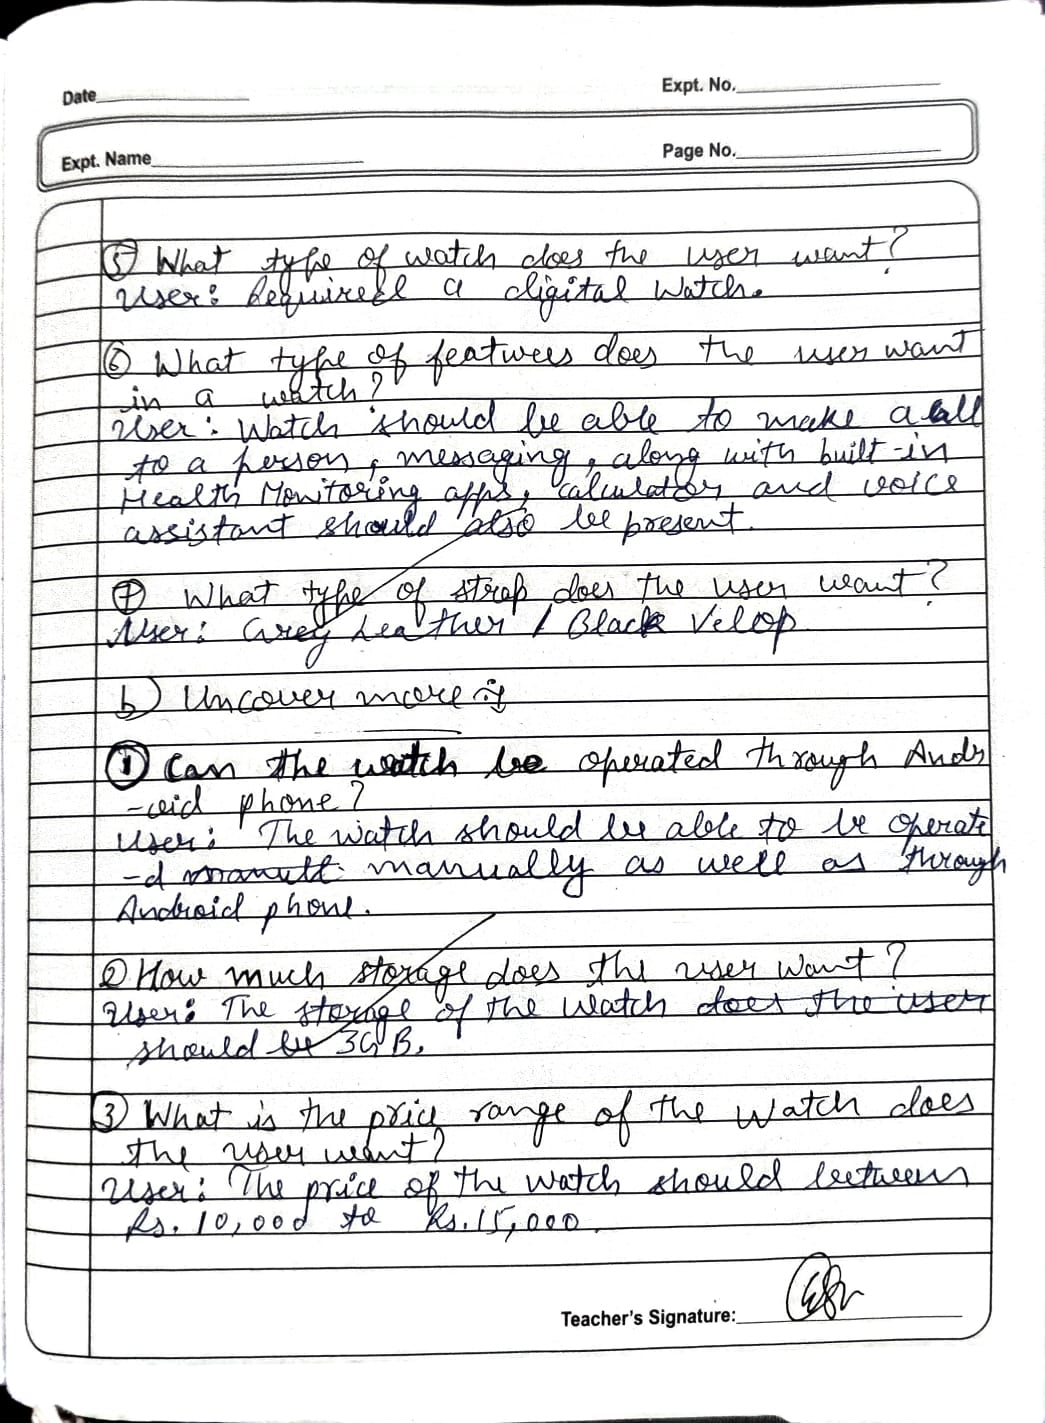 Date
Expt. No.
Expt. Name
Page No.
5 What type of watch does the user want?
User: Required a digital Watch.
6 What type of features does the user want
in a watch?
User: Watch should be able to make a call
to a person, messaging, along with built-in
Health Monitoring apps, calculator and voice
assistant should also be present.
7 What type of strap does the user want?
User: Grey Leather / Black Velop
b) Uncover more :-
1 Can the watch be operated through Andr
-oid phone?
User: The watch should be able to be operate
-d manually as well as through
Android phone.
2 How much storage does the user want?
User: The storage of the watch does the user
should be 3GB.
3 What is the price range of the watch does
the user want?
User: The price of the watch should between
Rs. 10,000 to Rs. 15,000.
Teacher's Signature: